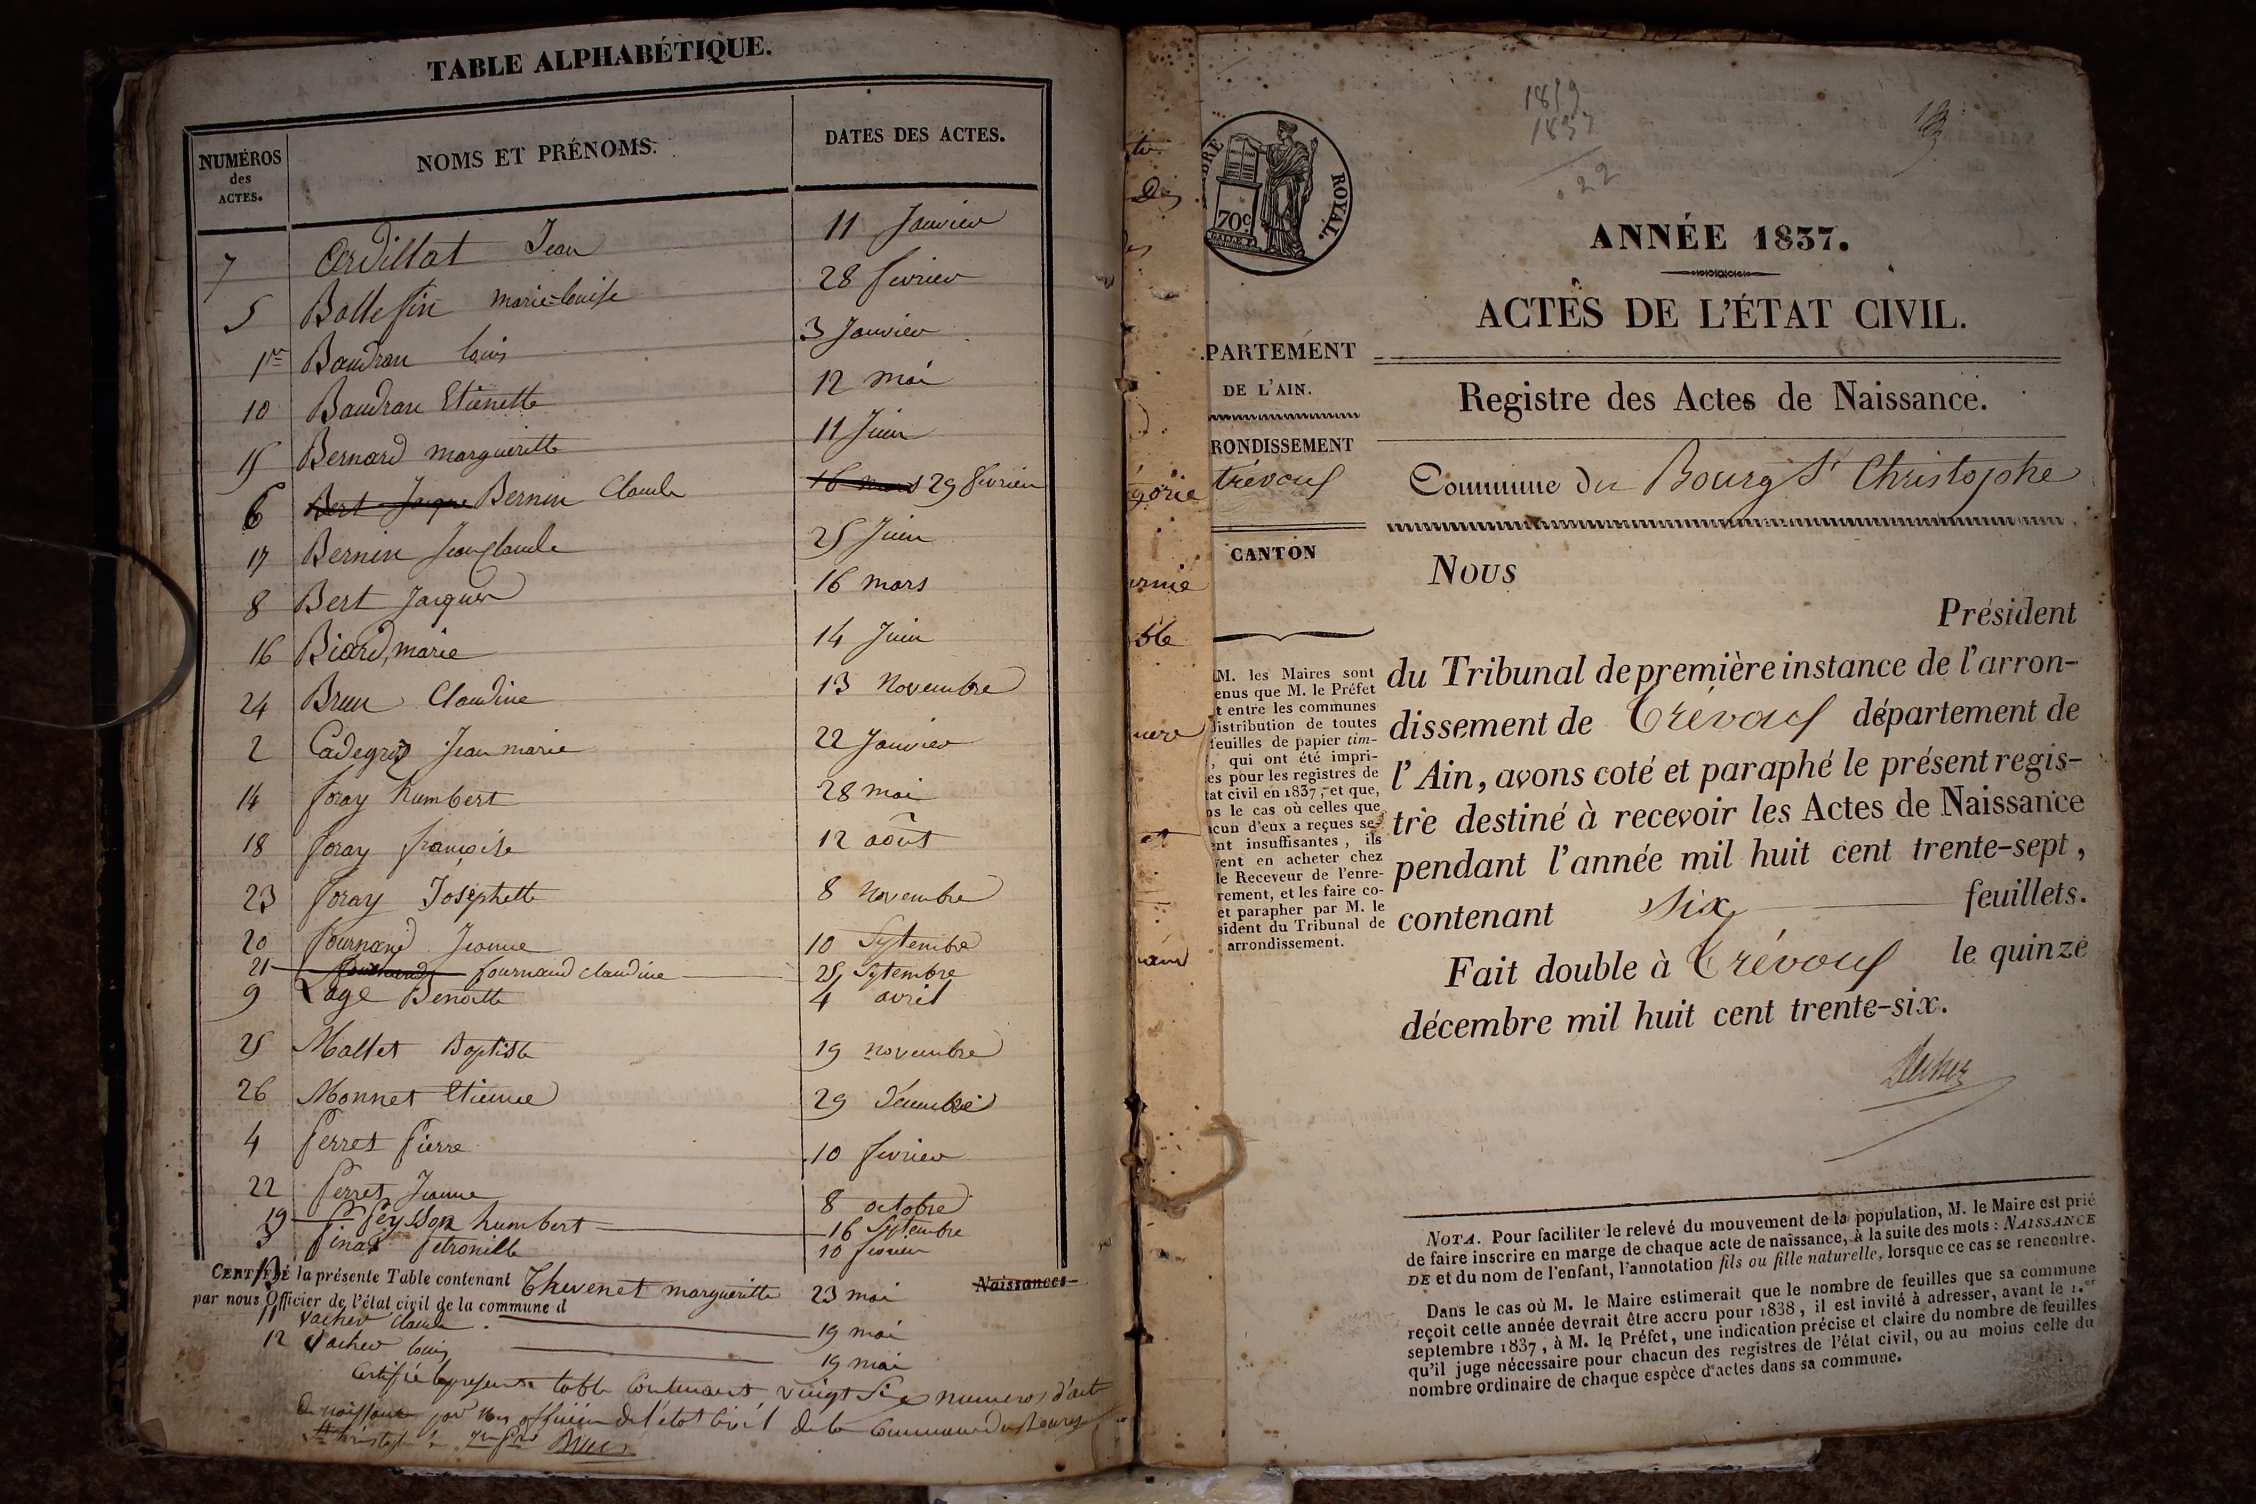 TABLE ALPHABÉTIQUE.
NUMÉROS des ACTES. NOMS ET PRÉNOMS. DATES DES ACTES.
7 Cordillot Jean 11 Janvier
5 Ballesin marie-louise 28 fevrier
1er Baudran louis 3 Janvier
10 Baudran Etienette 12 mai
15 Bernard margueritte 11 Juin
6 Bert Jaque Bernin Claude 16 mars 29 fevrier
17 Bernin Jean Claude 25 Juin
8 Bert Jacques 16 mars
16 Biard, marie 14 Juin
24 Brun Claudine 13 Novembre
2 Cadegros Jean marie 22 Janvier
14 foray humbert 28 mai
18 foray françoise 12 août
23 foray Josephette 8 novembre
20 fournand Jeanne 10 Septembre
21 fournand fournand claudine 25 Septembre
9 Lage Benoitte 4 avril
25 Mallet Baptiste 19 novembre
26 Monnet Etienne 29 décembre
4 Perret Pierre 10 fevrier
22 Perret Jeanne 8 octobre
19 Peysson humbert 16 Septembre
3 Pinat Petronille 10 fevrier
13 Thevenet marguerite 23 mai
CERTIFIÉ la présente Table contenant Naissances
par nous Officier de l'état civil de la commune d
11 Vacher Claude 19 mai
12 Vacher louis 19 mai
Certifié la presente table Contenant vingt Six numeros d'acte
de naissance par nous officier de l'état Civil de la Commune du Bourg
St Christophe
ROYAL.
70c
1859
1837
22
ANNÉE 1837.
ACTES DE L'ÉTAT CIVIL.
PARTEMENT
DE L'AIN.
RONDISSEMENT
trévoux
CANTON
Registre des Actes de Naissance.
Commune du Bourg St Christophe
Nous
Président
du Tribunal de première instance de l'arron-
dissement de Trévoux département de
l'Ain, avons coté et paraphé le présent regis-
tre destiné à recevoir les Actes de Naissance
pendant l'année mil huit cent trente-sept,
contenant six feuillets.
Fait double à Trévoux le quinze
décembre mil huit cent trente-six.
M. les Maires sont
enus que M. le Préfet
t entre les communes
distribution de toutes
feuilles de papier tim-
, qui ont été impri-
es pour les registres de
tat civil en 1837, et que,
ns le cas où celles que
acun d'eux a reçues se-
ent insuffisantes, ils
vent en acheter chez
le Receveur de l'enre-
rement, et les faire co-
et parapher par M. le
sident du Tribunal de
arrondissement.
NOTA. Pour faciliter le relevé du mouvement de la population, M. le Maire est prié
de faire inscrire en marge de chaque acte de naissance, à la suite des mots : NAISSANCE
DE et du nom de l'enfant, l'annotation fils ou fille naturelle, lorsque ce cas se rencontre.
Dans le cas où M. le Maire estimerait que le nombre de feuilles que sa commune
reçoit cette année devrait être accru pour 1838, il est invité à adresser, avant le 1.er
septembre 1837, à M. le Préfet, une indication précise et claire du nombre de feuilles
qu'il juge nécessaire pour chacun des registres de l'état civil, ou au moins celle du
nombre ordinaire de chaque espèce d'actes dans sa commune.